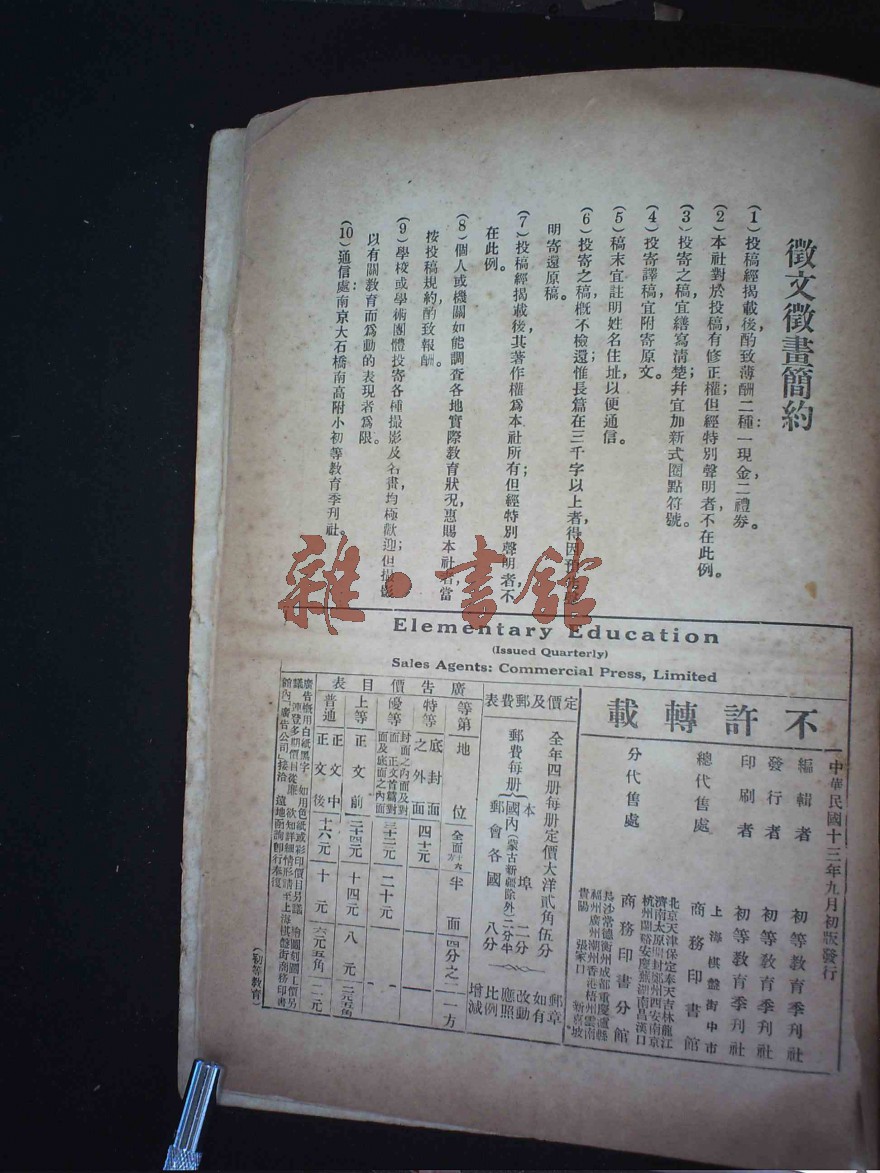 徵文徵畫簡約
(1)投稿經揭載後,酌致薄酬二種:一現金,二禮券。
(2)本社對於投稿有修正權;但經特別聲明者,不在此例。
(3)投寄之稿,宜繕寫清楚;幷宜加新式圈點符號。
(4)投寄譯稿,宜附寄原文。
(5)稿末宜註明姓名住址,以便通信。
(6)投寄之稿,概不檢還;惟長篇在三千字以上者,得因
明寄還原稿。
(7)投稿經揭載後,其著作權爲本社所有;但經特別聲明者,不
在此例。
(8)個人或機關如能調查各地實際教育狀况,惠賜本社者,當
按投稿規約,酌致報酬。
(9)學校或學術團體投寄各種攝影及名畫,均極歡迎;但攝影
以有關教育而爲動的表現者爲限。
(10)通信處:南京大石橋南高附小初等教育季刊社。
雜·書館
Elementary Education
(Issued Quarterly)
Sales Agents: Commercial Press, Limited
中華民國十三年九月初版發行
不許轉載
編輯者 初等教育季刊社
發行者 初等教育季刊社
印刷者 初等教育季刊社
總代售處 上海棋盤街中市 商務印書館
分代售處
北京天津保定奉天吉林龍江
濟南太原開封鄭州西安南京
杭州蘭谿安慶蕪湖南昌漢口
商務印書分館
長沙常德衡州成都重慶瀘縣
福州廣州潮州香港梧州雲南
貴陽 張家口 新嘉坡
定價及郵費表
全年四册每册定價大洋貳角伍分
郵費每册
本埠 二分
國內(蒙古新疆除外)二分半
郵會各國 八分
郵章如有改動應照比例增減
廣告價目表
等第 地位 全面 半面 四分之一
特等 底封面之外面 四十元
優等 封面之內面及對面正文首篇對面及底面之內面 三十二元 二十元
上等 正文前 二十四元 十四元 八元
普通 正文中 正文後 十六元 十元 六元五角
廣告概用白紙黑字,如用色紙或彩印價目另議,繪圖刻圖工價另
議,連登多期價目從廉,欲知詳細情形請至上海棋盤街商務印書
館內「廣告公司」接洽,遠地函詢即行奉復
(初等教育